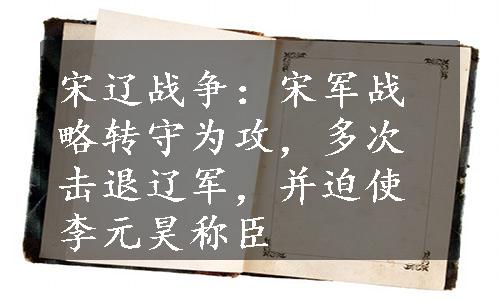 宋辽战争：宋军战
略转守为攻，多次
击退辽军，并迫使
李元昊称臣